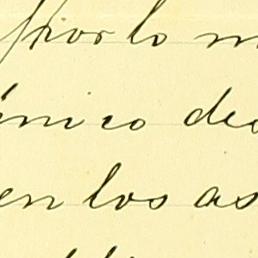 por lo m
ínico des
en los as